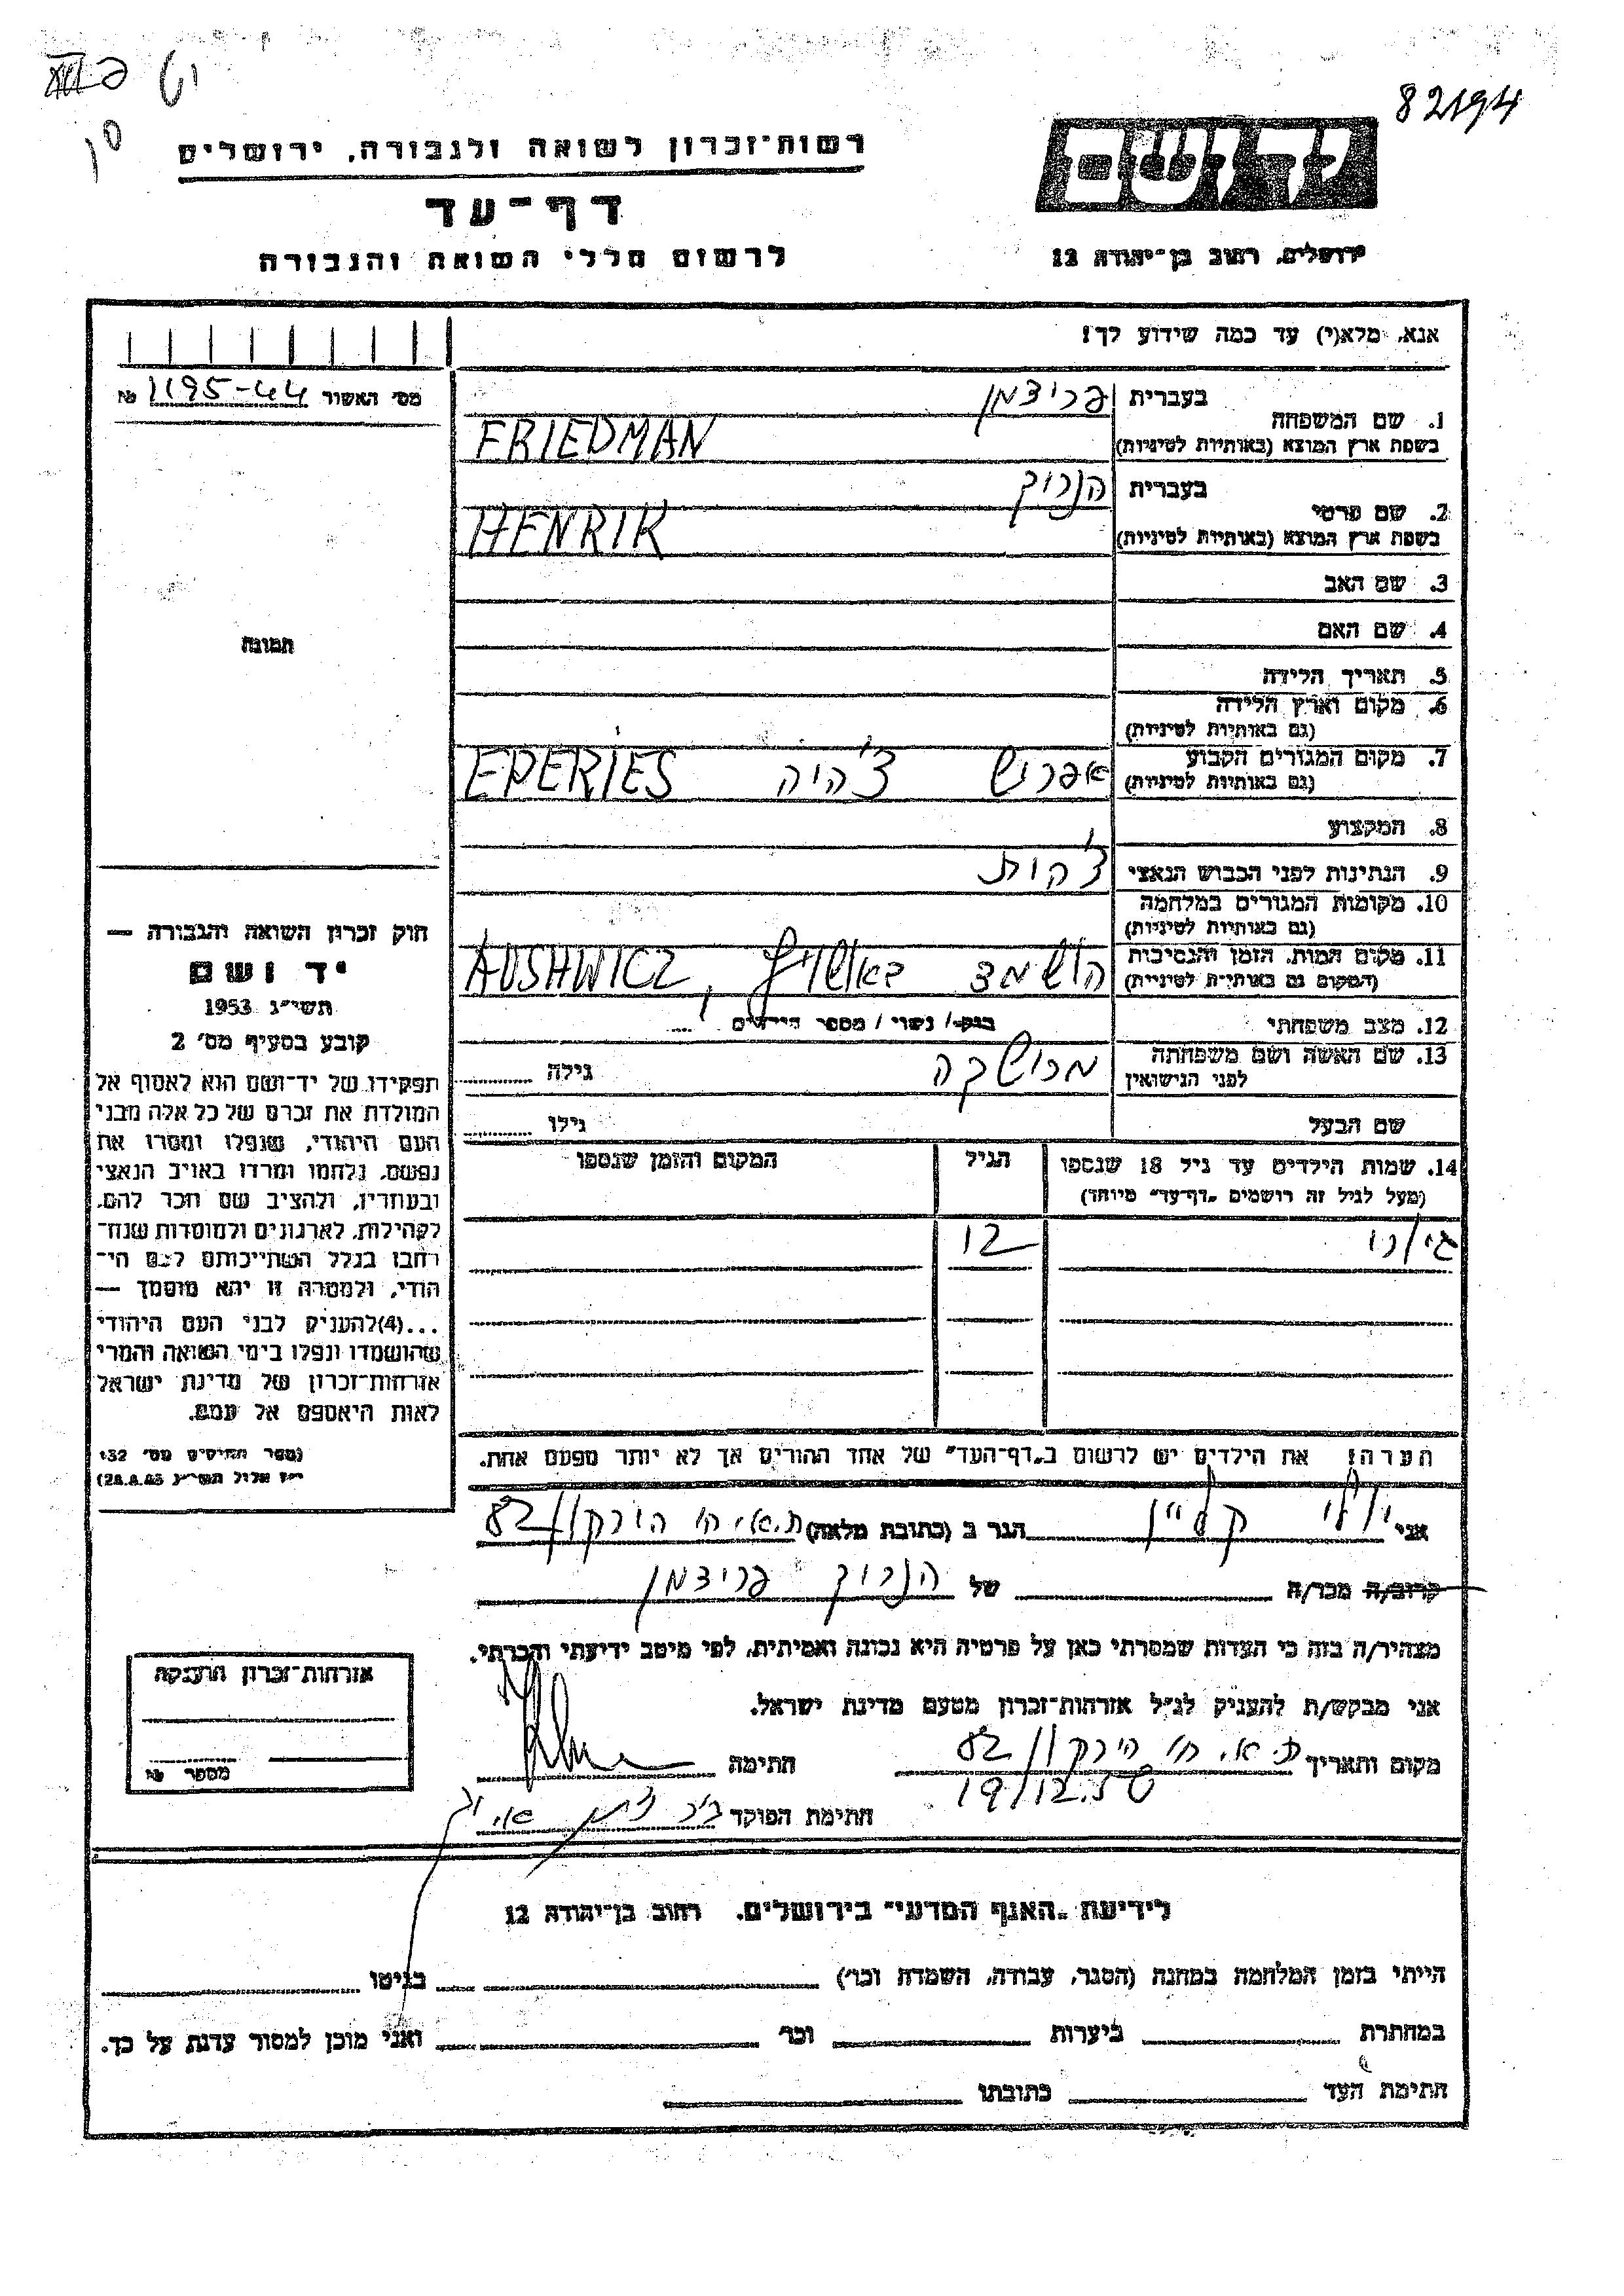 82194
יד ושם
ירושלים, רחוב בן־יהודה 12
רשות־זכרון לשואה ולגבורה, ירושלים
דף־עד
לרשום חללי השואה והגבורה
אנא, מלא(י) עד כמה שידוע לך!
מס׳ האשור 1195-44 №
1. שם המשפחה בעברית פרידמן
בשפת ארץ המוצא (באותיות לטיניות) FRIEDMAN
2. שם פרטי בעברית הנריק
בשפת ארץ המוצא (באותיות לטיניות) HENRIK
3. שם האב
4. שם האם
5. תאריך הלידה
6. מקום וארץ הלידה
(גם באותיות לטיניות)
7. מקום המגורים הקבוע אפרוש צ'היה EPERIES
(גם באותיות לטיניות)
8. המקצוע
9. הנתינות לפני הכבוש הנאצי צ'כית
10. מקומות המגורים במלחמה
(גם באותיות לטיניות)
11. מקום המות, הזמן והנסיבות הושמד באושויץ, AUSHWICZ
(המקום גם באותיות לטיניות)
12. מצב משפחתי רווק / נשוי / מספר הילדים
13. שם האשה ושם משפחתה מרושקה גילה
לפני הנישואין
שם הבעל גילו
14. שמות הילדים עד גיל 18 שנספו הגיל המקום והזמן שנספו
(מעל לגיל זה רושמים „דף־עד״ מיוחד)
12
הערה! את הילדים יש לרשום ב„דף־העד״ של אחד ההורים אך לא יותר מפעם אחת.
תמונה
חוק זכרון השואה והגבורה —
יד ושם
תשי״ג 1953
קובע בסעיף מס׳ 2
תפקידו של יד־ושם הוא לאסוף אל
המולדת את זכרם של כל אלה מבני
העם היהודי, שנפלו ומסרו את
נפשם, נלחמו ומרדו באויב הנאצי
ובעוזריו, ולהציב שם וזכר להם,
לקהילות, לארגונים ולמוסדות שנח־
רבו בגלל השתייכותם לעם הי־
הודי, ולמטרה זו יהא מוסמך —
...(4) להעניק לבני העם היהודי
שהושמדו ונפלו בימי השואה והמרי
אזרחות־זכרון של מדינת ישראל
לאות היאספם אל עמם.
(ספר החוקים מס׳ 132
י״ז אלול תשי״ג 28.8.53)
אני קליין הגר ב (כתובת מלאה) ת.א. הירקון 82
קרוב/ה מכר/ה של הנריק פרידמן
מצהיר/ה בזה כי העדות שמסרתי כאן על פרטיה היא נכונה ואמיתית, לפי מיטב ידיעתי והכרתי.
אני מבקש/ת להעניק לנ״ל אזרחות־זכרון מטעם מדינת ישראל.
מקום ותאריך ת.א. הירקון 82 חתימה
19/12.56
חתימת הפוקד
אזרחות־זכרון הוענקה
מספר №
לידיעת „האגף המדעי״ בירושלים, רחוב בן־יהודה 12
הייתי בזמן המלחמה במחנה (הסגר, עבודה, השמדה וכו׳) בגיטו
במחתרת ביערות וכו׳ ואני מוכן למסור עדות על כך.
חתימת העד כתובתו